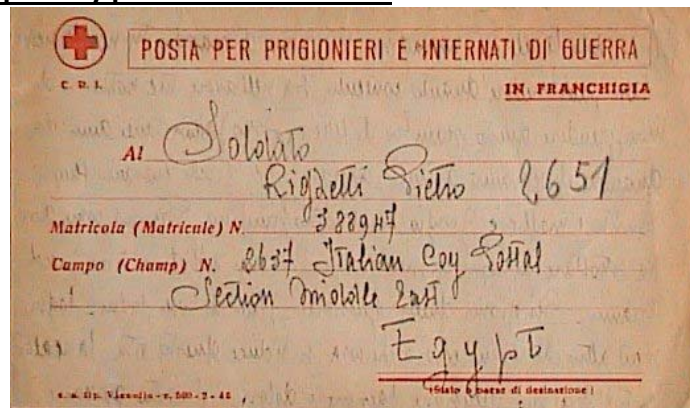 POSTA PER PRIGIONIERI E INTERNATI DI GUERRA
C. R. I.
IN FRANCHIGIA
Al Soldato
Righetti Pietro 2651
Matricola (Matricule) N. 388947
Campo (Champ) N. 2637 Italian Coy Postal
Section Middle East
Egypt
(Stato o paese di destinazione)